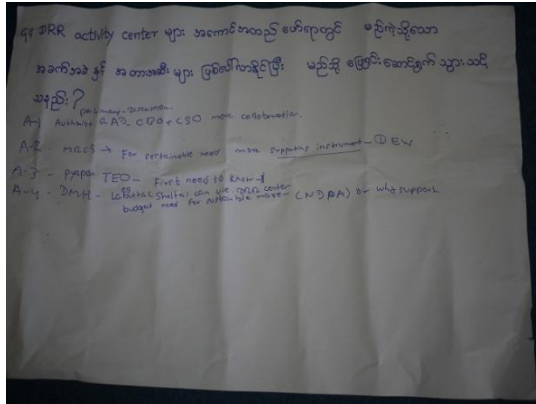 ၄။ DRR activity center များ အကောင်အထည် ဖော်ရာတွင် မည်ကဲ့သို့သော
အခက်အခဲ နှင့် အတားအဆီး များ ဖြစ်ပေါ်လာနိုင်ပြီး မည်သို့ ဖြေရှင်း ဆောင်ရွက် သွား သင့်
သနည်း?
A-1 GAD, CBO + CSO more collaboration.
A-2 - MRCS → For sustainable need more supporting instrument - ① EW
A-3 - PYAPON TEO - First need to know
A-4 - DMH - Labutta Shelter can use DRR center
budget need for sustainable more - (NDPA) or why support